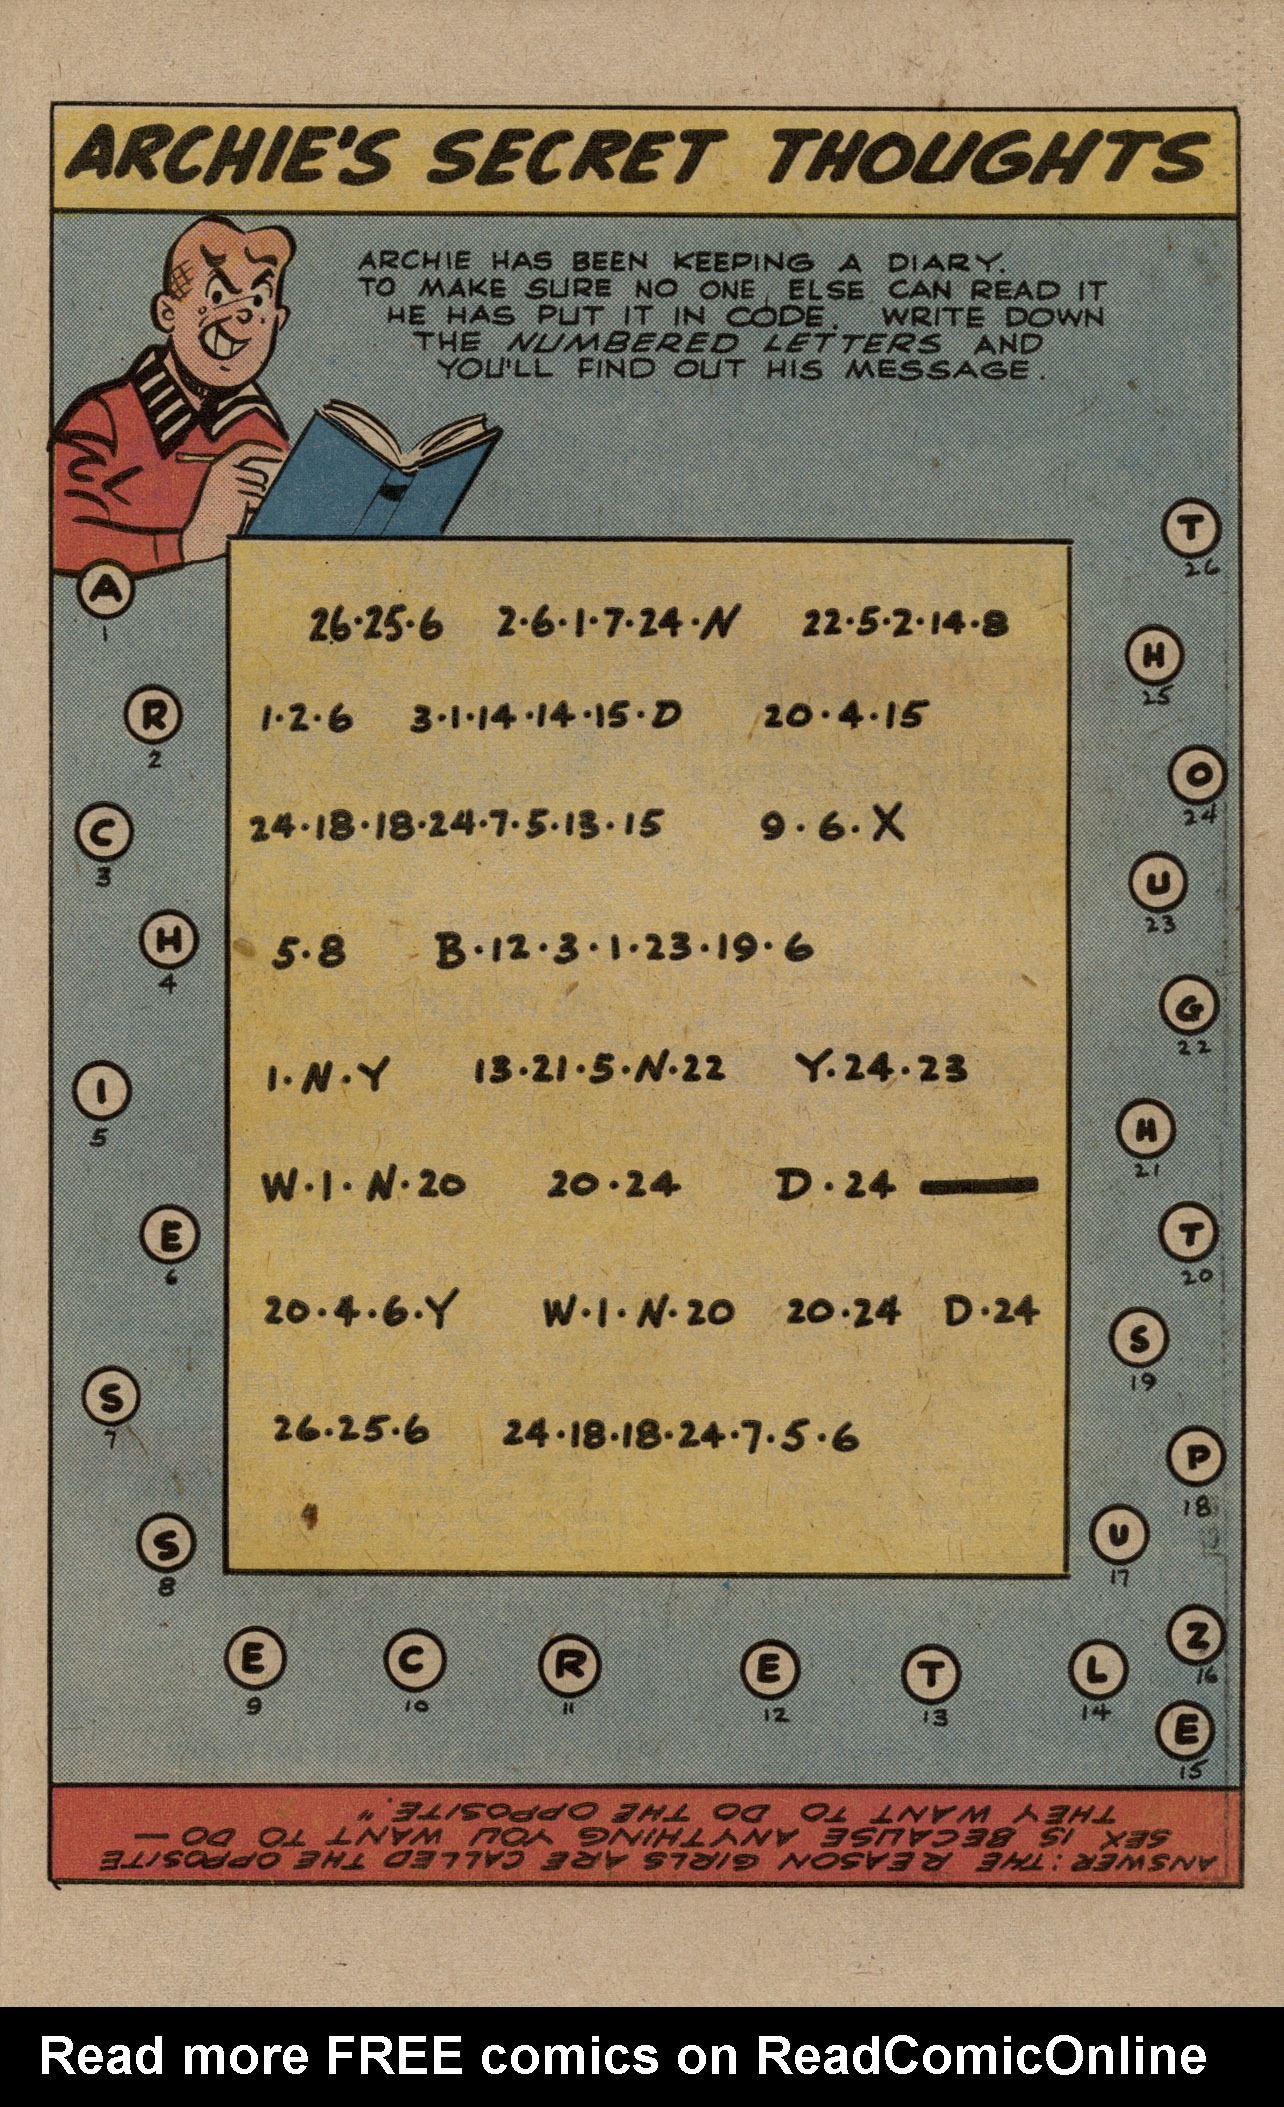 ARCHIE'S SECRET THOUGHTS
ARCHIE HAS BEEN KEEPING A DIARY.
TO MAKE SURE NO ONE ELSE CAN READ IT
HE HAS PUT IT IN CODE. WRITE DOWN
THE NUMBERED LETTERS AND
YOU'LL FIND OUT HIS MESSAGE.
A
1
R
2
C
3
H
4
I
5
E
6
S
7
S
8
E
9
C
10
R
11
E
12
T
13
L
14
E
15
Z
16
U
17
P
18
S
19
T
20
H
21
G
22
U
23
O
24
H
25
T
26
26·25·6 2·6·1·7·24·N 22·5·2·14·8
1·2·6 3·1·14·14·15·D 20·4·15
24·18·18·24·7·5·13·15 9·6·X
5·8 B·12·3·1·23·19·6
1·N·Y 13·21·5·N·22 Y·24·23
W·1·N·20 20·24 D·24 —
20·4·6·Y W·1·N·20 20·24 D·24
26·25·6 24·18·18·24·7·5·6
ANSWER: THE REASON GIRLS ARE CALLED THE OPPOSITE
SEX IS BECAUSE ANYTHING YOU WANT TO DO —
THEY WANT TO DO THE OPPOSITE."
Read more FREE comics on ReadComicOnline